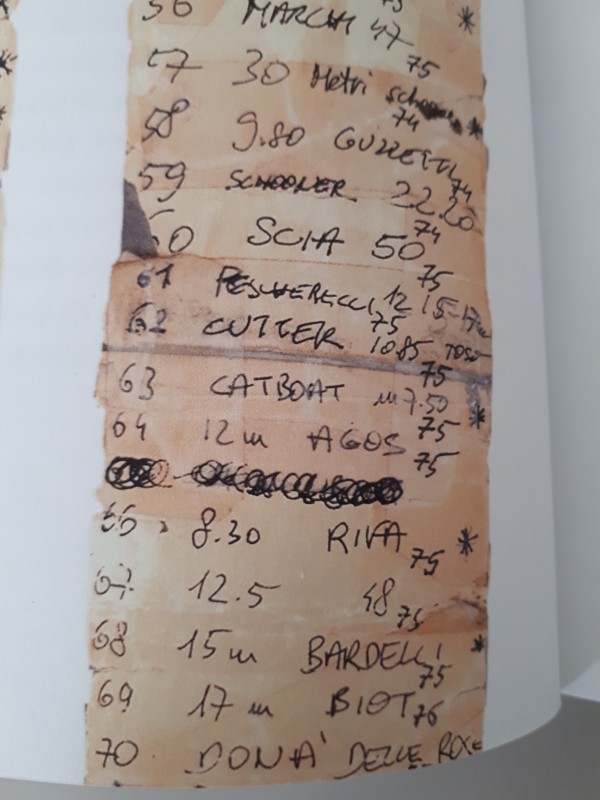 56 MARCHI 47 75 *
57 30 Metri schooner 74 *
58 9.80 GUZZETTI 74
59 SCHOONER 22.20 74
60 SCIA 50 75
61 PESCHERECCI 12 15-17m 75
62 CUTTER 10.85 TOSO 75
63 CATBOAT m 7.50 75 *
64 12 m AGOS 75
66 8.30 RIVA 75 *
67 12.5 48 75
68 15 m BARDELLI 75 *
69 17 m BIOT 76
70 DONA' DELLE ROSE